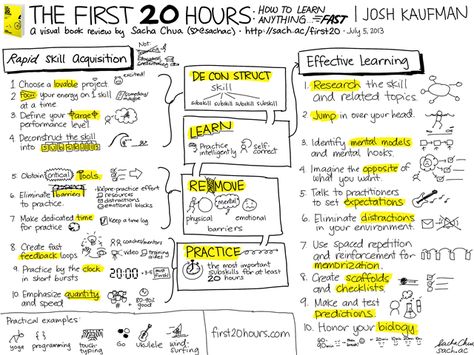 THE FIRST 20 HOURS: HOW TO LEARN ANYTHING... FAST | JOSH KAUFMAN
a visual book review by Sacha Chua (@sachac) • http://sach.ac/first20 • July 5, 2013
Rapid Skill Acquisition
excited!
1 Choose a lovable project
2 Focus your energy on 1 skill
at a time
3 Define your target
performance level
4 Deconstruct the skill
into subskills
5 Obtain critical tools
6 Eliminate barriers
to practice.
practice effort
resources
distractions
emotional blocks
7 Make dedicated time
for practice
Keep a time log
8 Create fast
feedback loops
coaches/mentors
video
training
9 Practice by the clock
in short bursts
20:00
10 Emphasize quantity
and speed
80-90%
good
DECONSTRUCT
Skill
subskill subskill subskill subskill
LEARN
Practice
intelligently
self-
correct
REMOVE
physical
mental
emotional
barriers
PRACTICE
the most important
subskills for at least
20 HOURS
Effective Learning
1. Research the skill
and related topics.
2. Jump in over your head.
3. Identify mental models
and mental hooks.
4. Imagine the opposite of
what you want.
5. Talk to practitioners
to set expectations
6. Eliminate distractions
in your environment.
7. Use spaced repetition
and reinforcement for
memorization.
8. Create scaffolds
and checklists
9. Make and test
predictions.
10. Honor your biology.
Practical examples:
yoga
programming
touch-
typing
Go
ukulele
wind-
surfing
first20hours.com
Sacha Chua
sach.ac